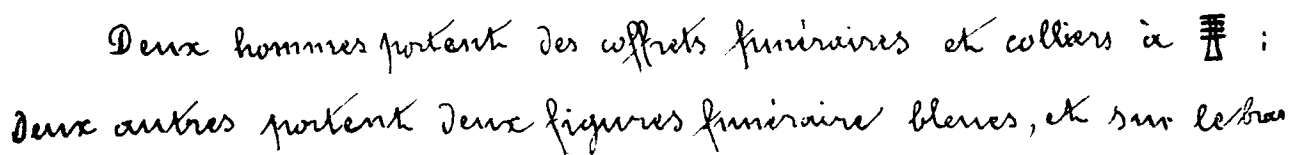 Deux hommes portent des coffrets funéraires et colliers à 𓊽 :
Deux autres portent deux figures funéraire bleues, et sur le bras